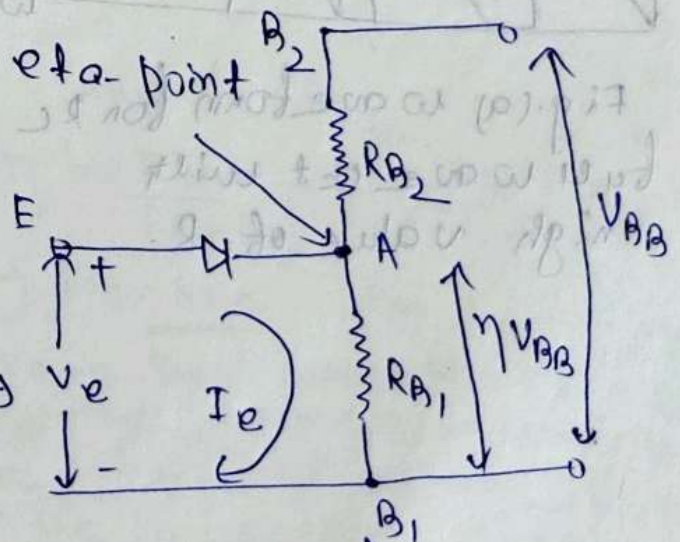 B2
eta-point
RB2
E
VBB
+
A
ηVBB
Ve
Ie
RB1
-
B1